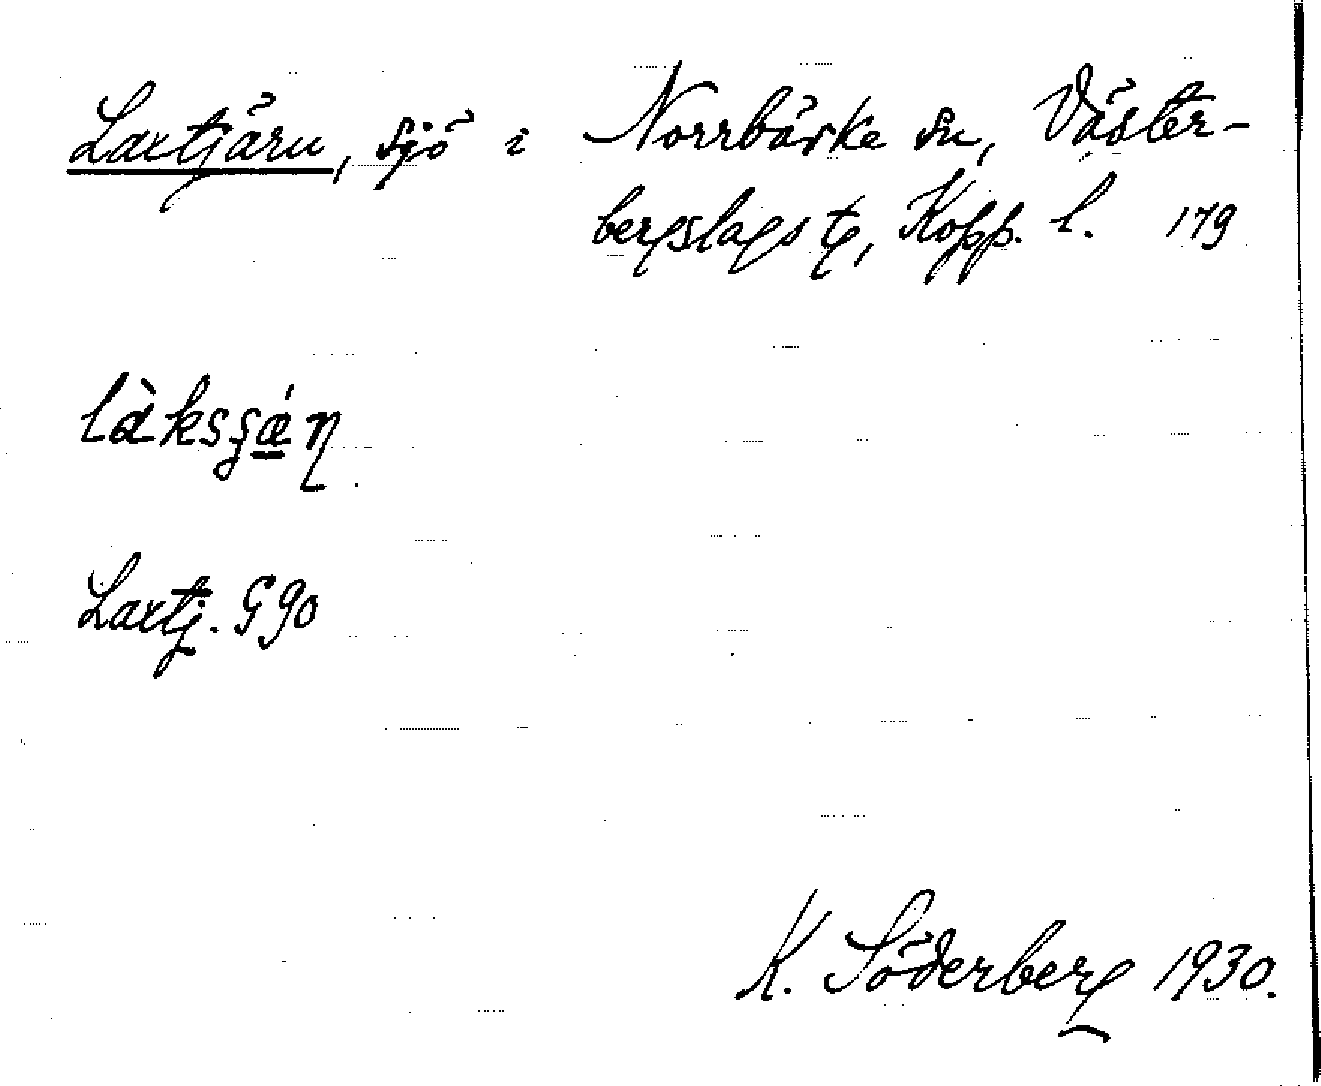 Laxtjärn, sjö i Norrbärke sn, Väster-
bergslags tg, Kopp. l. 179
làksʂǽn
Laxtj. G 90
K. Söderberg 1930.